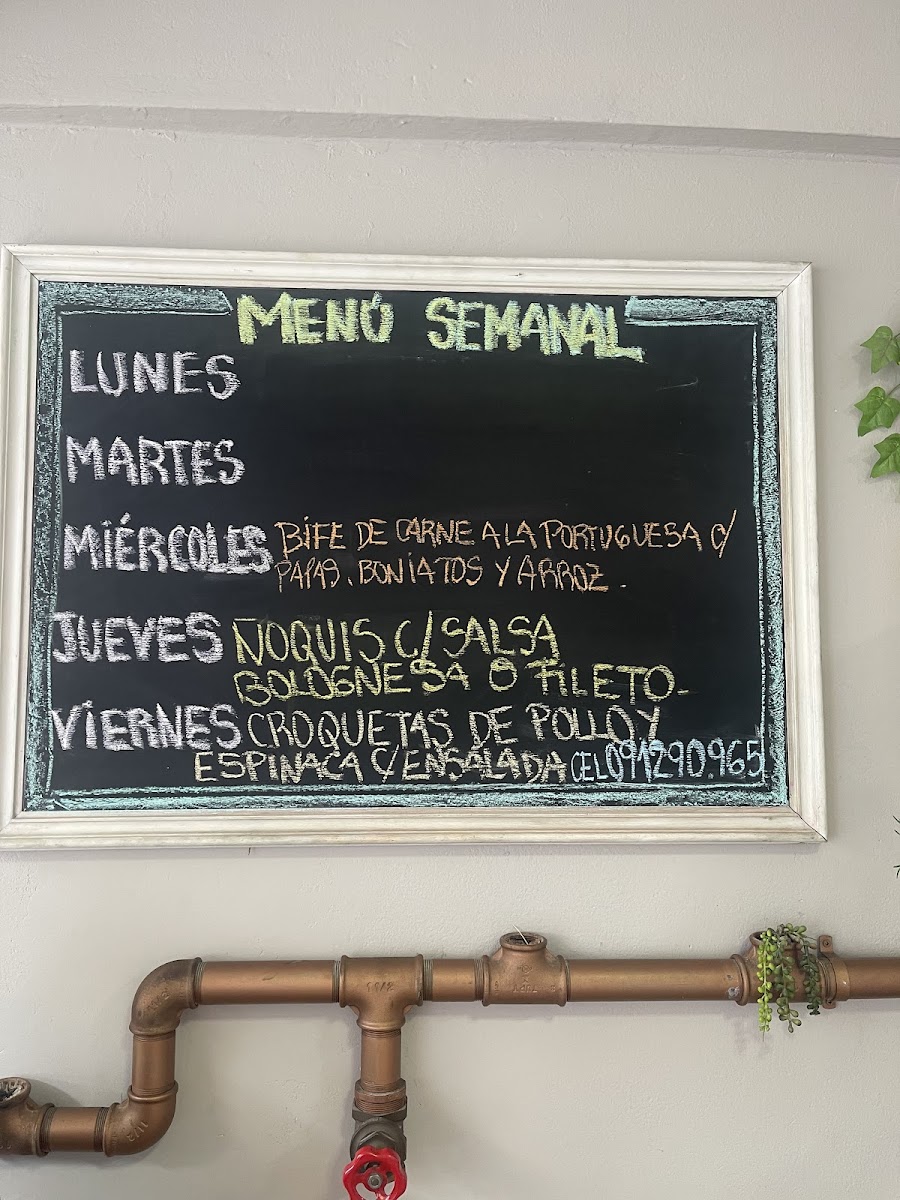 MENÚ SEMANAL
LUNES
MARTES
MIÉRCOLES BIFE DE CARNE A LA PORTUGUESA C/
PAPAS, BONIATOS Y ARROZ.
JUEVES ÑOQUIS C/SALSA
BOLOGNESA O FILETO-
VIERNES CROQUETAS DE POLLO Y
ESPINACA C/ENSALADA CEL091290.965
1 1/2